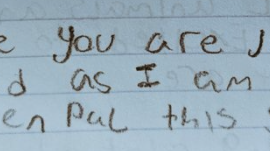 e you are J
d as I am
en Pal this